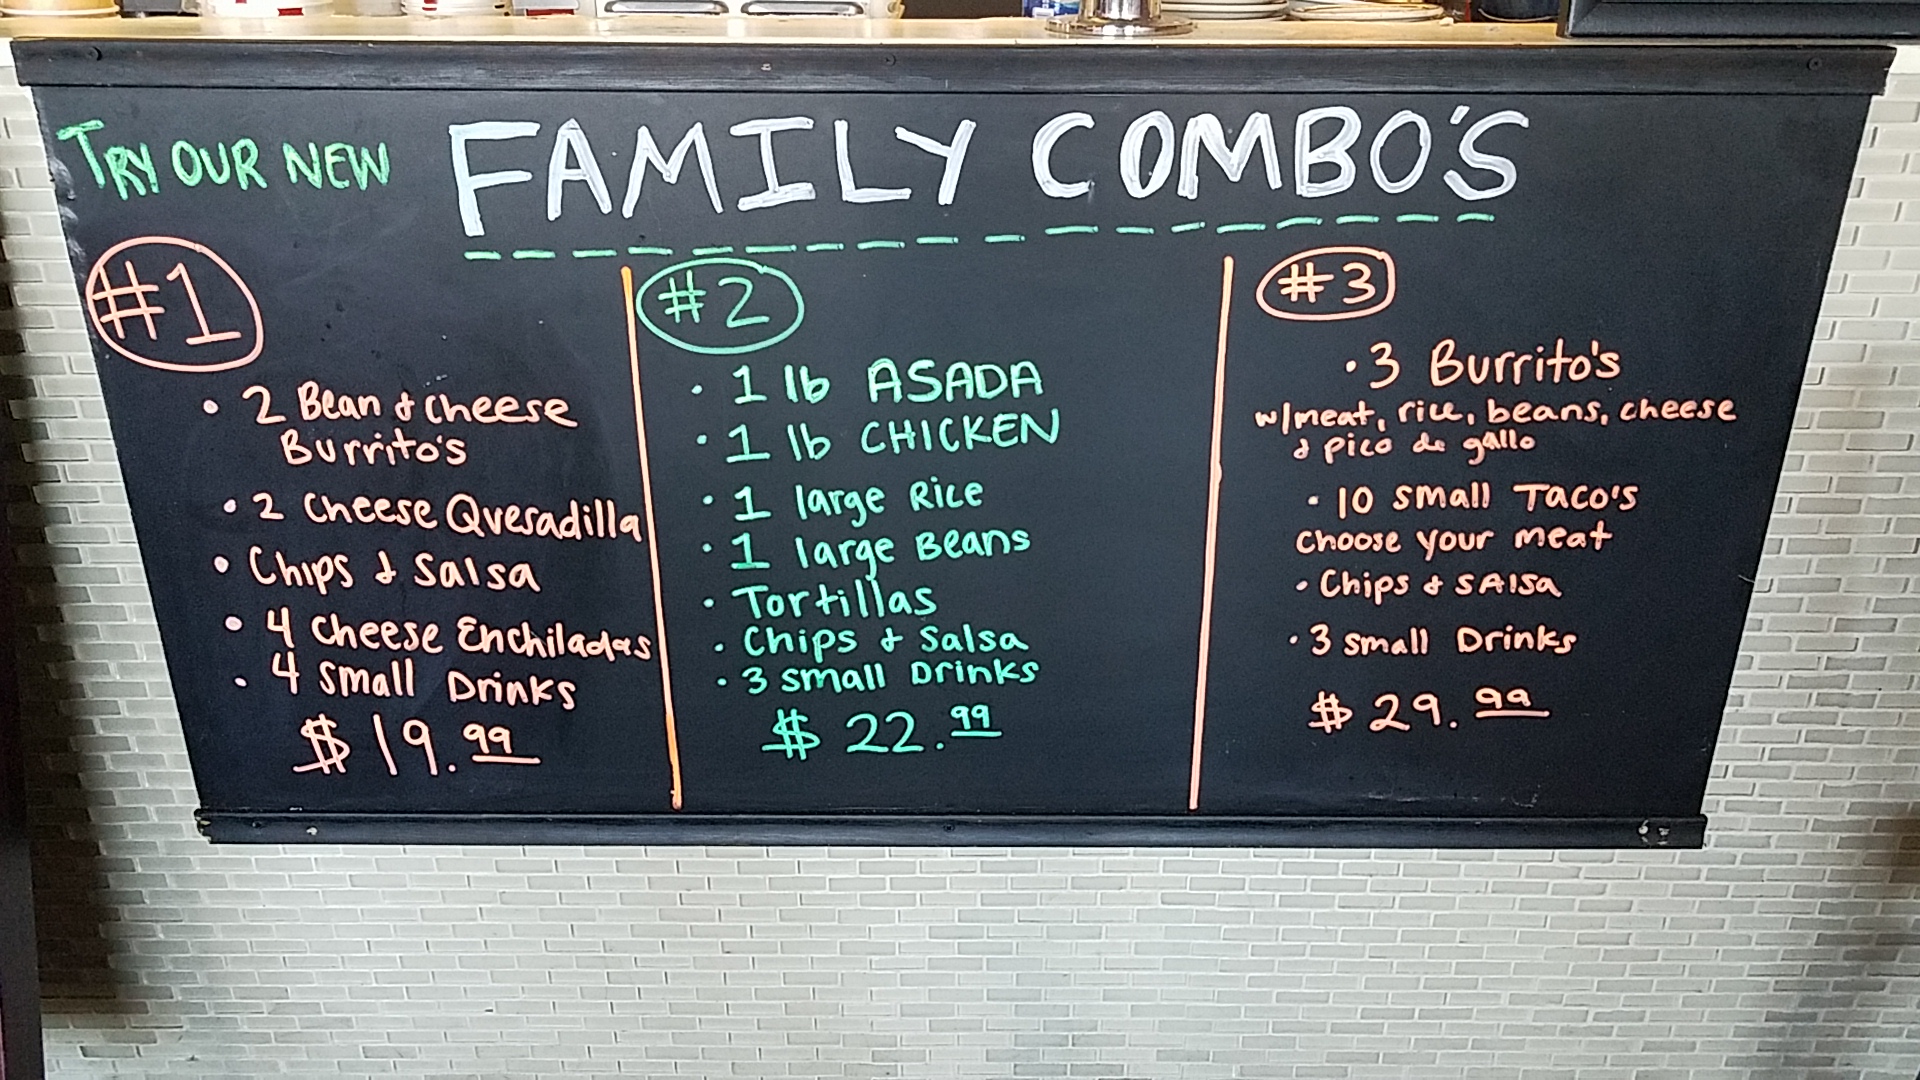 TRY OUR NEW FAMILY COMBO'S
#1
• 2 Bean & Cheese
Burrito's
• 2 Cheese Quesadilla
• Chips & Salsa
• 4 Cheese Enchiladas
• 4 Small Drinks
$19.99
#2
• 1 lb ASADA
• 1 lb CHICKEN
• 1 large Rice
• 1 large Beans
• Tortillas
• Chips & Salsa
• 3 small Drinks
$22.99
#3
• 3 Burrito's
w/meat, rice, beans, cheese
& pico de gallo
• 10 small Taco's
choose your meat
• Chips & SAlSa
• 3 small Drinks
$29.99